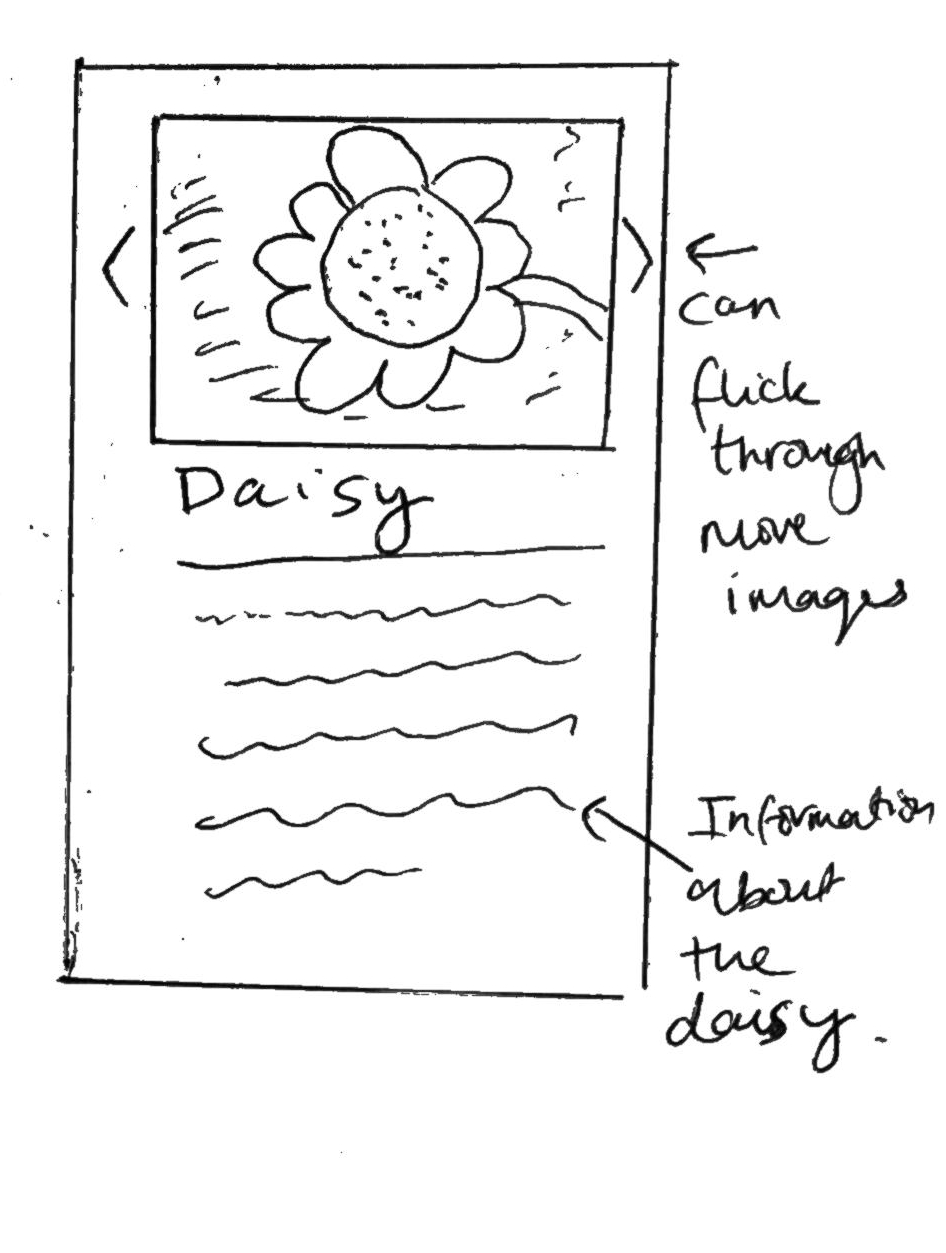 Daisy
can
flick
through
more
images
Information
about
the
daisy.